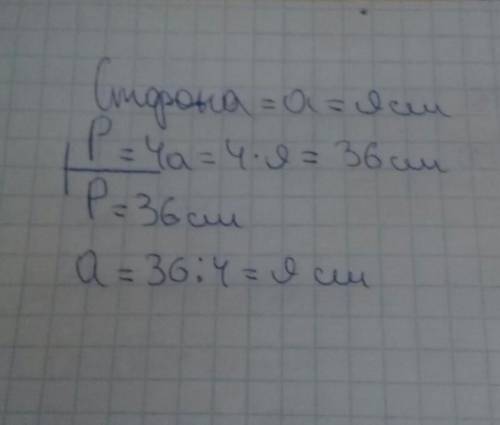 Сторона = a = 9 см
P = 4a = 4 · 9 = 36 см
P = 36 см
a = 36 : 4 = 9 см